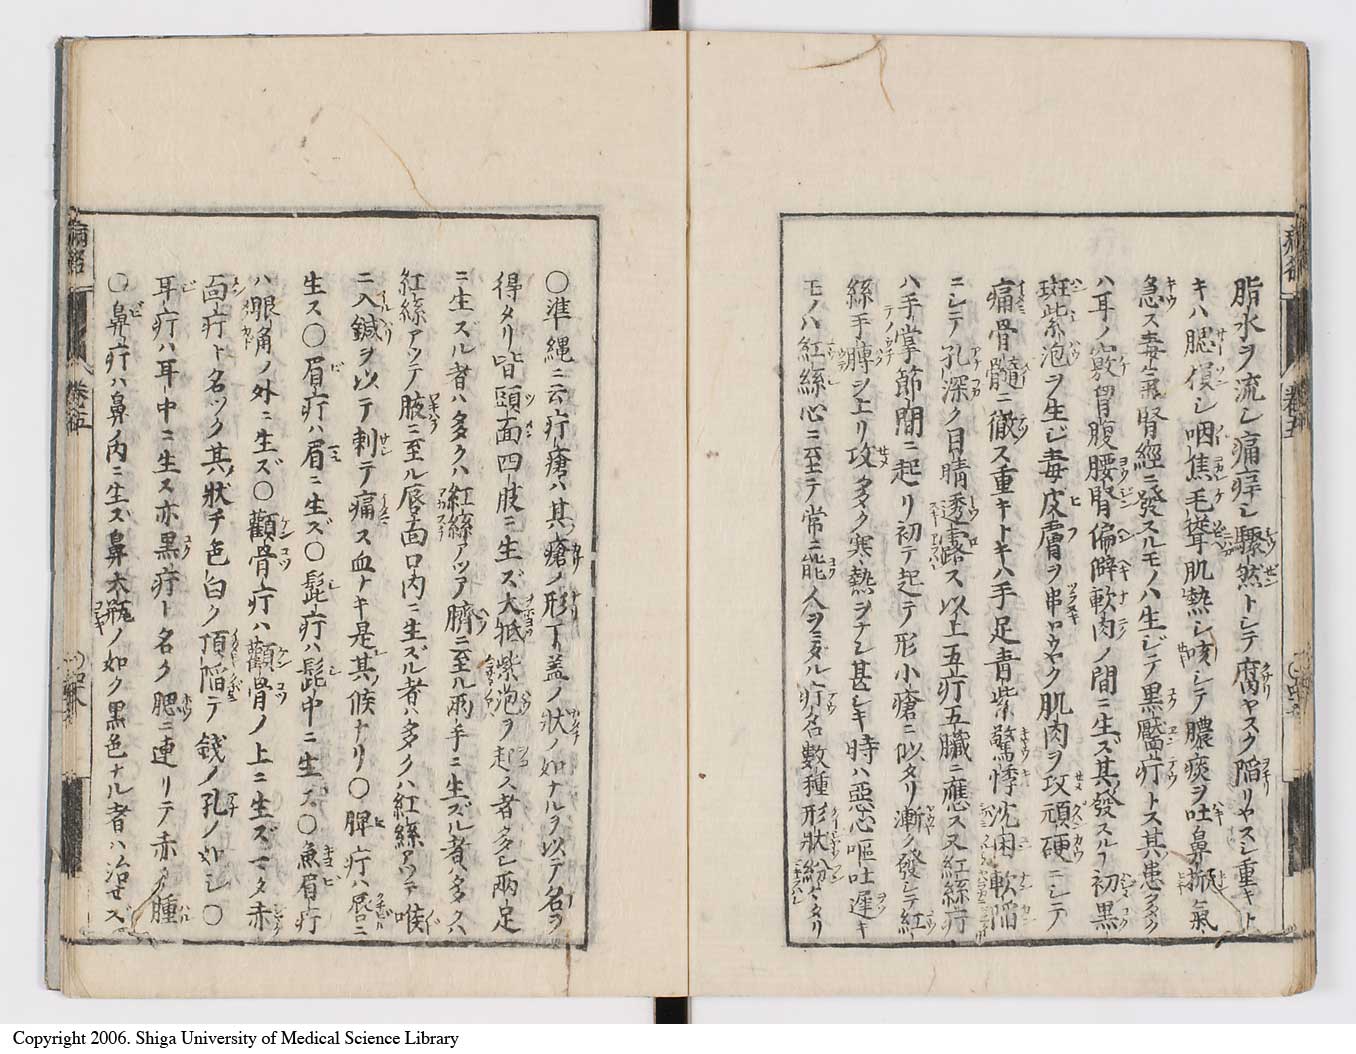 脂水ヲ流シ痛痒シ驟然トシテ腐ヤスク陥リヤスシ重キト
キハ腮ヒシ咽焦毛聳肌熱シ咳シテ膿痰ヲ吐鼻掀氣
急ス毒氣腎經ニ發スルモノハ生ジテ黒黶疔トス其患多ク
ハ耳ノ竅胷腹腰腎偏僻軟肉ノ間ニ生ズ其發スル初黒
斑紫泡ヲ生ジ毒皮膚ヲ串ヤウヤク肌肉ヲ攻頑硬ニシテ
痛骨髓ニ徹ス重キトキハ手足青紫驚悸沈困軟陥
ニシテ孔深ク目睛透露ス以上五疔五臟ニ應ス又紅絲疔
ハ手掌節間ニ起リ初テ起テ形小瘡ニ似タリ漸ク發シテ紅
絲手膊ヲ上リ攻多ク寒熱ヲナシ甚シキ時ハ惡心嘔吐遲キ
モノハ紅絲心ニ至テ常ニ能人ヲ疔名數種形狀紛々タリ
〇準縄ニ云疔瘡ハ其瘡ノ形丁盖ノ狀ノ如ナルヲ以テ名ヲ
得タリ皆頭面四肢ニ生ズ大抵紫泡ヲ起ス者多シ兩足
ニ生ズル者ハ多クハ紅絲アツテ臍ニ至ル兩手ニ生ズル者ハ多クハ
紅絲アツテ腋ニ至ル唇面口内ニ生ズル者ハ多クハ紅絲アツテ喉
ニ入鍼ヲ以テ刺テ痛ス血ナキ是其候ナリ〇脾疔ハ唇ニ
生ス〇眉疔ハ眉ニ生ズ〇髭疔ハ髭中ニ生ス〇魚眉疔
ハ眼角ノ外ニ生ズ〇顴骨疔ハ顴骨ノ上ニ生ズマタ赤
面疔ト名ツク其狀チ色白ク頂陥テ錢ノ孔ノ如シ〇
耳疔ハ耳中ニ生ス亦黒疔ト名ク腮ニ連リテ赤ク腫ル
〇鼻疔ハ鼻ノ内ニ生ズ鼻大瓶ノ如ク黒色ナル者ハ治セズ
Copyright 2006. Shiga University of Medical Science Library